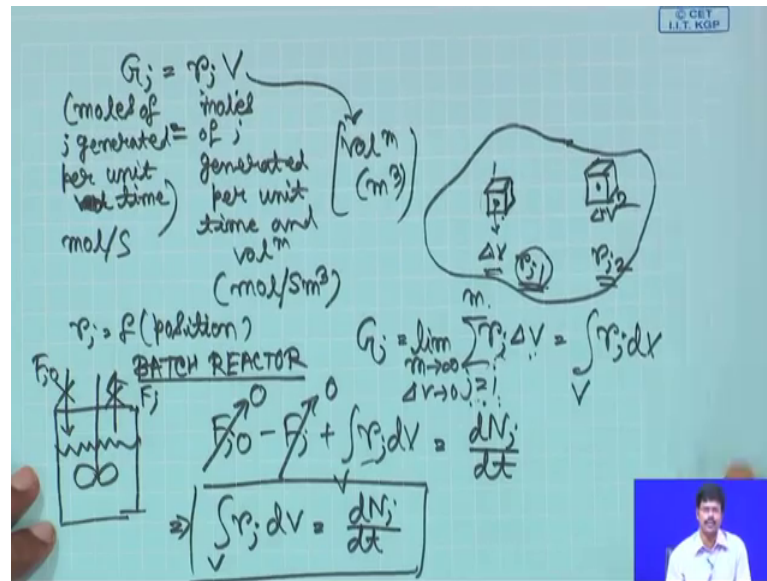 © CET
I.I.T. KGP
G_j = r_j V
(moles of j generated per unit time) = moles of j generated per unit time and vol^m
mol/s
(mol/s m³)
vol^m
(m³)
1
ΔV
r_j1
2
ΔV
r_j2
r_j = f(position)
G_j = lim_{m→∞, ΔV→0} Σ_{j=1}^{m} r_j ΔV = ∫_V r_j dV
BATCH REACTOR
F_j0
F_j
F_j0 → 0 − F_j → 0 + ∫_V r_j dV = dN_j/dt
⇒ ∫_V r_j dV = dN_j/dt